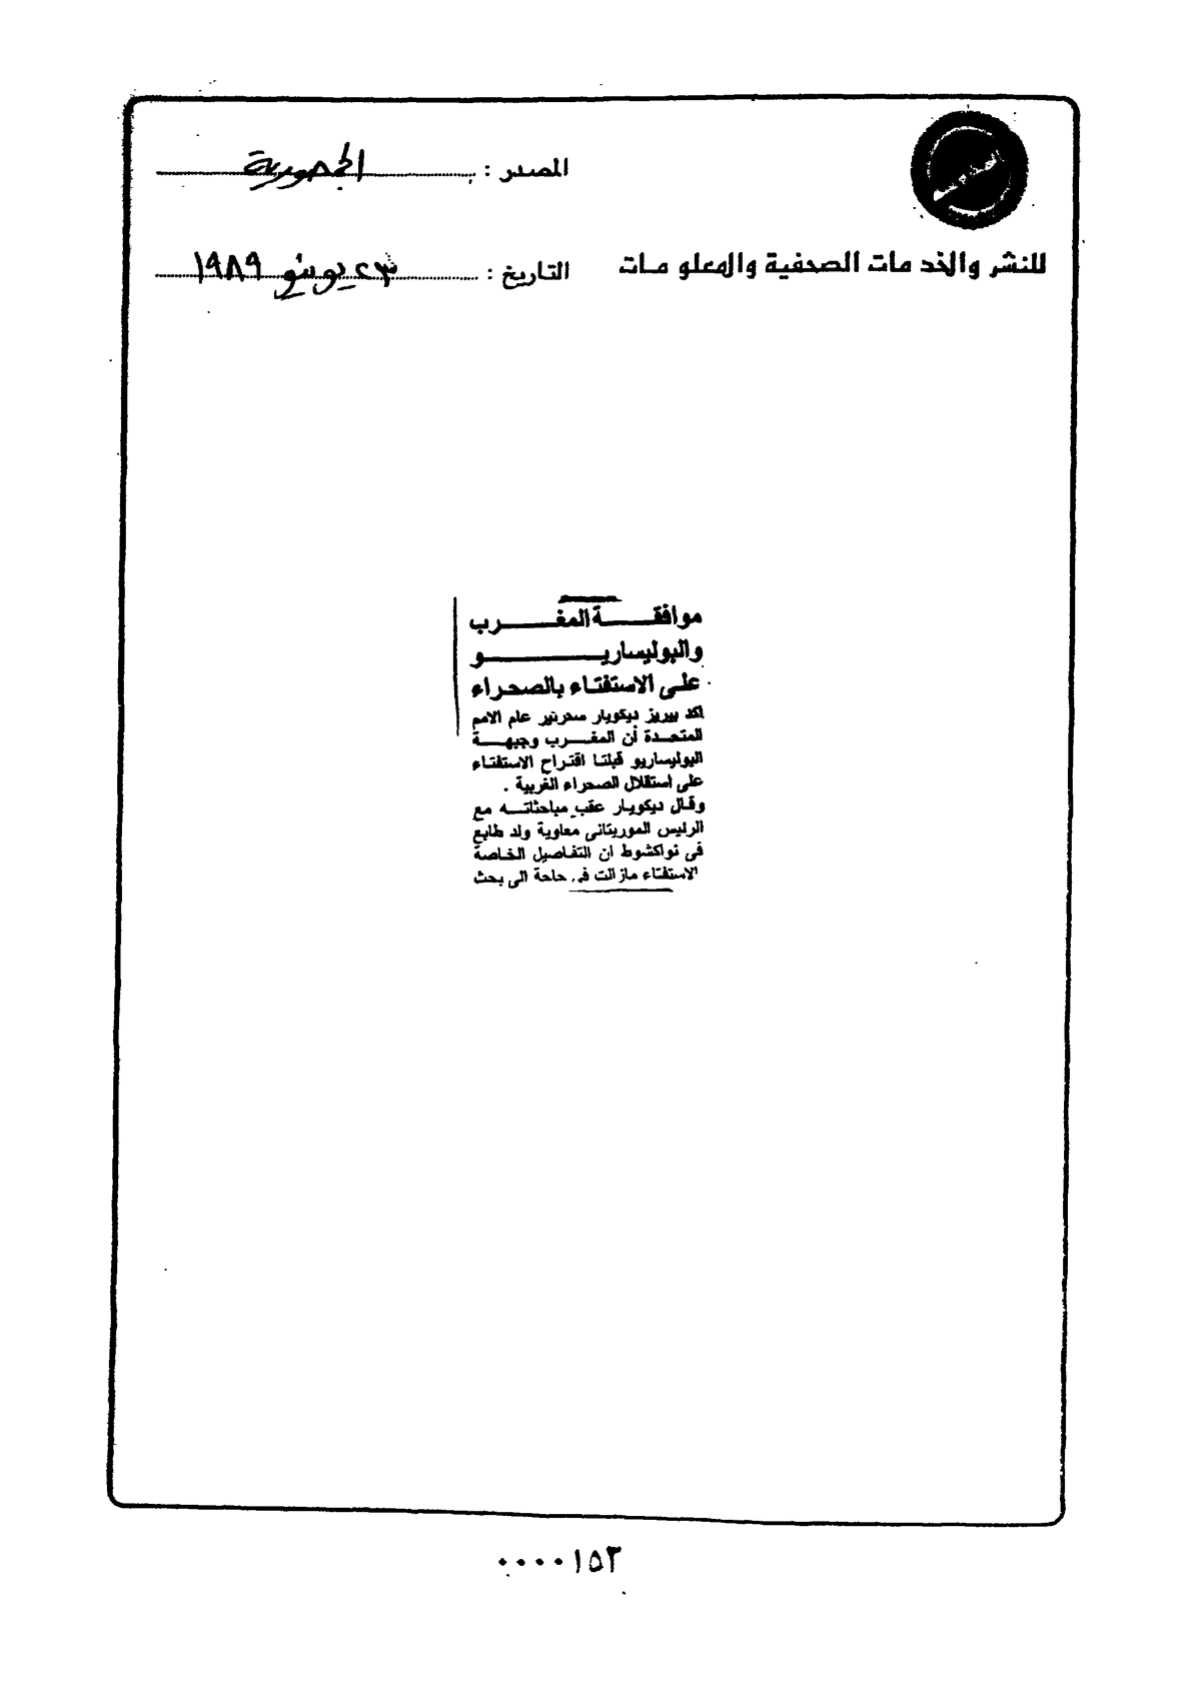 المصدر : الجمهورية
للنشر والخدمات الصحفية والمعلومات
التاريخ : ٢٣ يونيو ١٩٨٩
موافقة المغرب
والبوليساريو
على الاستفتاء بالصحراء
اكد بيريز ديكويار سكرتير عام الامم
المتحدة أن المغرب وجبهة
البوليساريو قبلتا اقتراح الاستفتاء
على استقلال الصحراء الغربية .
وقال ديكويار عقب مباحثاته مع
الرئيس الموريتانى معاوية ولد طايع
فى نواكشوط ان التفاصيل الخاصة
الاستفتاء مازالت فى حاجة الى بحث
٠٠٠٠١٥٣